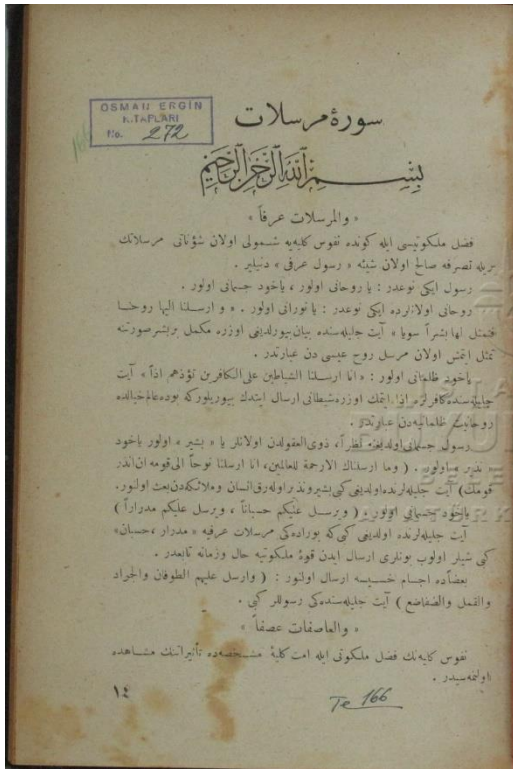 OSMAN ERGİN
KİTAPLARI
No. 272
166
سورهٔ مرسلات
بسم الله الرحمن الرحيم
« والمرسلات عرفاً »
فضل ملكوتيسی ايله كونده نفوس كليه‌يه شمولی اولان شؤناتی مرسلاتك
بريله تصرفه صالح اولان شيئه « رسول عرفی » دنيلير .
رسول ايكی نوعدر : يا روحانی اولور ، ياخود جسمانی اولور .
روحانی اولانلرده ايكی نوعدر : يا نورانی اولور . « و ارسلنا اليها روحنا
فتمثل لها بشراً سويا » آيت جليله‌سنده بيان بيورلديغی اوزره مكمل بر بشر صورتنه
تمثل ايتمش اولان مرسل روح عيسی دن عبارتدر .
ياخود ظلمانی اولور : « انا ارسلنا الشياطين علی الكافرين تؤذهم اذاً » آيت
جليله‌سنده كافرلره اذا ايتمك اوزره شيطانی ارسال ايتدك بيوريلور كه بوده عالم خيالده
روحانيت ظلمانيه‌دن عبارتدر .
رسول جسمانی اولديغنه نظراً ، ذوی العقولدن اولانلر يا « بشير » اولور ياخود
« نذير » اولور . ( وما ارسلناك الا رحمة للعالمين، انا ارسلنا نوحاً الی قومه ان انذر
قومك ) آيت جليله‌لرنده اولديغی كبی بشير و نذير اوله‌رق انسان و ملائكه‌دن بعث اولنور.
ياخود جسمانی اولور ، ( ويرسل عليكم حسباناً ، ويرسل عليكم مدراراً )
آيت جليله‌لرنده اولديغی كبی كه بوراده‌كی مرسلات عرفيه « مدرار ، حسبان »
كبی شيلر اولوب بونلری ارسال ايدن قوهٔ ملكوتيه حال وزمانه تابعدر .
بعضاًده اجسام خسيسه ارسال اولنور : ( وارسل عليهم الطوفان والجراد
والقمل والضفاضع ) آيت جليله‌سنده‌كی رسوللر كبی .
« والعاصفات عصفاً »
نفوس كليه‌نك فضل ملكوتی ايله امت كليهٔ مشخصه‌ده تأثيراتنك مشاهده
اولنمه‌سيدر .
١٤
Te 166